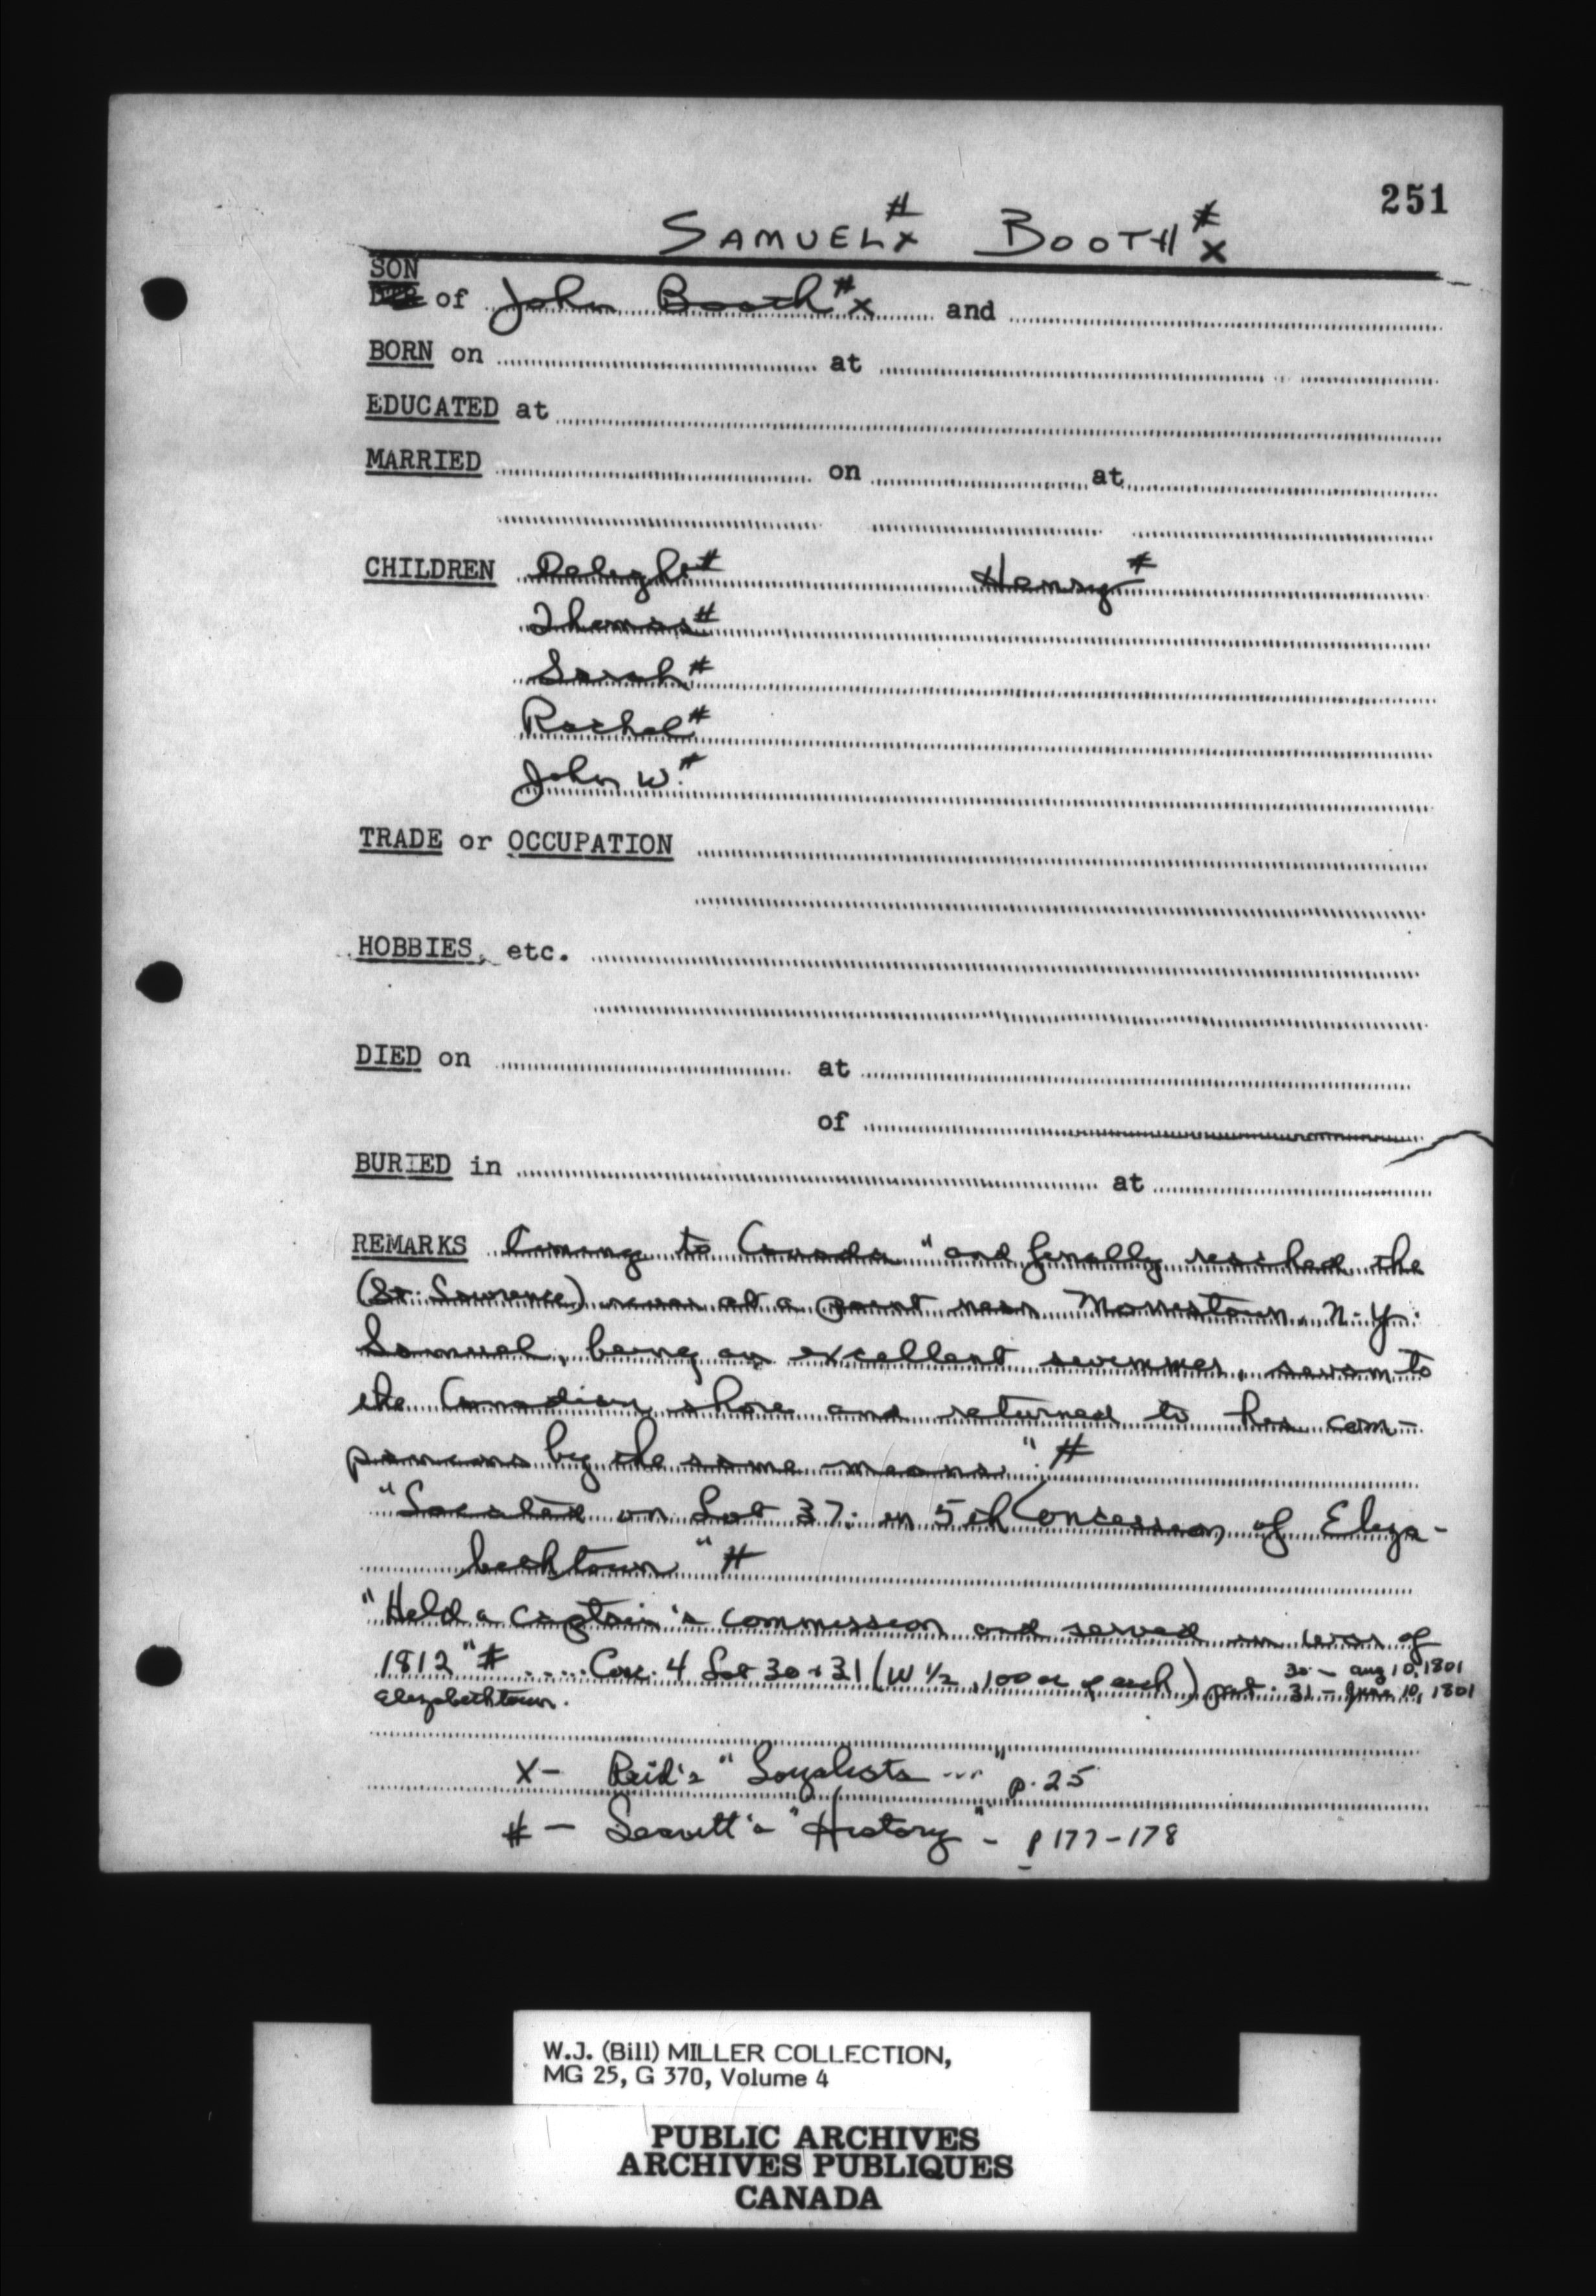 251
SAMUEL # x BOOTH # x
SON
DTR of John Booth # x and
BORN on at
EDUCATED at
MARRIED on at
CHILDREN Deleght # Henry #
Thomas #
Sarah #
Rachel #
John W. #
TRADE or OCCUPATION
HOBBIES, etc.
DIED on at
of
BURIED in at
REMARKS Coming to Canada "and finally reached the
(St. Lawrence) river at a point near Morristown, N.Y.
Samuel, being an excellent swimmer, swam to
the Canadian shore and returned to his com-
panions by the same means." #
"Located on Lot 37, in 5th Concession, of Eliza-
bethtown" #
"Held a captain's commission and served in war of
1812" # ..... Con. 4 Lot 30 + 31 (W 1/2, 100 ac of each) pat. 30 - Aug 10, 1801
Elizabethtown. 31 - June 10, 1801
X - Reid's "Loyalists ..." p. 25
# - Leavitt's "History" - p 177-178
W.J. (Bill) MILLER COLLECTION,
MG 25, G 370, Volume 4
PUBLIC ARCHIVES
ARCHIVES PUBLIQUES
CANADA